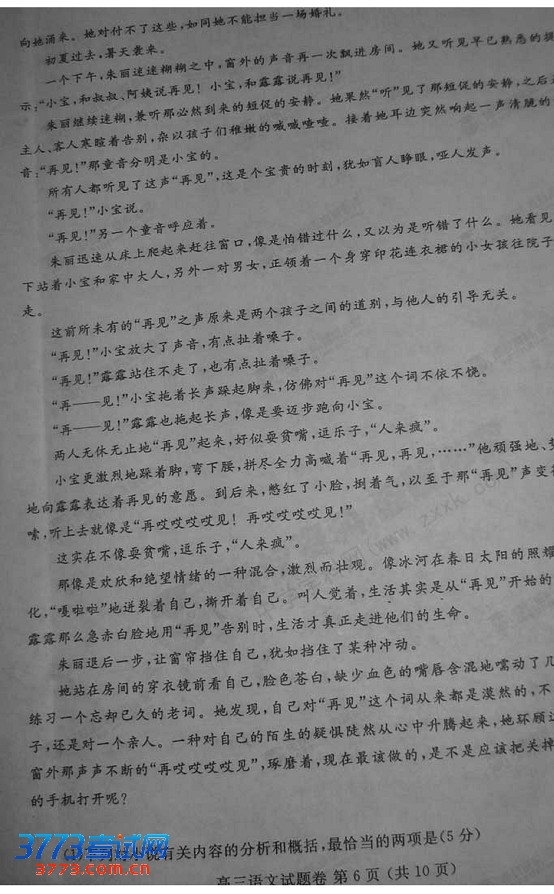 向她涌来。她对付不了这些,如同她不能担当一场婚礼。
初夏过去,暑天袭来。
一个下午,朱丽迷迷糊糊之中,窗外的声音再一次飘进房间。她又听见早已熟悉的提
示:“小宝,和叔叔、阿姨说再见!小宝,和露露说再见!”
朱丽继续迷糊,兼听那必然到来的短促的安静。她果然“听”见了那短促的安静,之后
主人、客人寒暄着告别,杂以孩子们稚嫩的喊喊喳喳。接着她耳边突然响起一声清脆的
音:“再见!”那童音分明是小宝的。
所有人都听见了这声“再见”,这是个宝贵的时刻,犹如盲人睁眼,哑人发声。
“再见!”小宝说。
“再见!”另一个童音呼应着。
朱丽迅速从床上爬起来赶往窗口,像是怕错过什么,又以为是听错了什么。她看见
下站着小宝和家中大人,另外一对男女,正领着一个身穿印花连衣裙的小女孩往院子
走。
这前所未有的“再见”之声原来是两个孩子之间的道别,与他人的引导无关。
“再见!”小宝放大了声音,有点扯着嗓子。
“再见!”露露站住不走了,也有点扯着嗓子。
“再——见!”小宝拖着长声跺起脚来,仿佛对“再见”这个词不依不饶。
“再——见!”露露也拖起长声,像是要迈步跑向小宝。
两人无休无止地“再见”起来,好似耍贫嘴,逗乐子,“人来疯”。
小宝更激烈地跺着脚,弯下腰,拼尽全力高喊着“再见,再见,……”他顽强地、
地向露露表达着再见的意愿。到后来,憋红了小脸,捯着气,以至于那“再见”声变
嗦,听上去就像是“再哎哎哎哎见!再哎哎哎哎见!”
这实在不像耍贫嘴,逗乐子,“人来疯”。
那像是欢欣和绝望情绪的一种混合,激烈而壮观。像冰河在春日太阳的照耀
化,“嘎啦啦”地迸裂着自己,撕开着自己。叫人觉着,生活其实是从“再见”开始的
露露那么急赤白脸地用“再见”告别时,生活才真正走进他们的生命。
朱丽退后一步,让窗帘挡住自己,犹如挡住了某种冲动。
她站在房间的穿衣镜前看自己,脸色苍白,缺少血色的嘴唇含混地嚅动了几
练习一个忘却已久的老词。她发现,自己对“再见”这个词从来都是漠然的,不
子,还是对一个亲人。一种对自己的陌生的疑惧陡然从心中升腾起来,她环顾
窗外那声声不断的“再哎哎哎哎见”,琢磨着,现在最该做的,是不是应该把关掉
的手机打开呢?
(1)下列对小说有关内容的分析和概括,最恰当的两项是(5分)
高三语文试题卷 第6页(共10页)
3773考试网
3773.com.cn